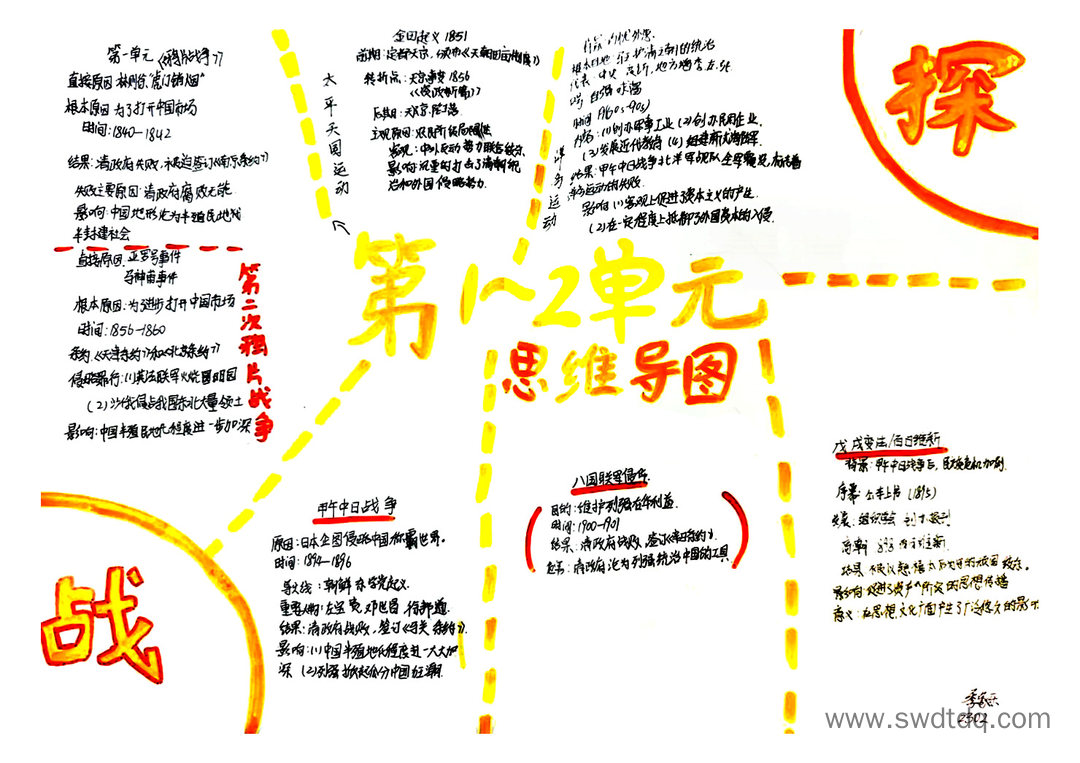 第一单元《鸦片战争》
直接原因 林则徐"虎门销烟"
根本原因 为了打开中国市场
时间:1840-1842
结果:清政府失败,不得签订《南京条约》
失败主要原因 清政府腐败无能
影响:中国地形化为半殖民地我
半封建社会
直接原因:亚罗号事件
马神甫事件
根本原因:为进步打开中国市场
时间:1856-1860
条约:《天津条约》和《北京条约》
侵略罪行:(1)英法联军火烧圆明园
(2)沙俄侵占我国东北大量领土
影响:中国半殖民地化程度进一步加深
第二次鸦片战争
太平天国运动
金田起义 1851
前期:定都天京,颁布《天朝田亩制度》
转折点:天京事变 1856
《资政新篇》
后期:天京陷落
主观原因:农民阶级局限性
影响 沉重的打击了清朝统
治和外国侵略势力.
洋务运动
口号 自强 求富
时间 (1860s-90s)
内容:(1)创办军事工业 (2)创办民用企业.
(3)发展近代教育 (4)
结果:甲午中日战争 北洋军舰队 全军覆没,
洋务运动的失败.
影响 (1)客观上促进了资本主义的产生.
(2)在一定程度上抵御了外国资本的入侵.
探
第1~2单元
思维导图
战
甲午中日战争
原因:日本企图侵略中国称霸世界。
时间:1894-1896
导火线:朝鲜 东学党起义.
重要人物:左宝贵 邓世昌 徐邦道.
结果:清政府战败,签订《马关条约》.
影响:(1)中国半殖地化程度进一大大加
深 (2)列强掀起瓜分中国狂潮.
八国联军侵华
目的:维护列强在华利益.
时间:1900-1901
结果:清政府战败,签订《辛丑条约》.
危害:清政府沦为列强统治中国的工具.
戊戌变法/百日维新
背景:甲午中日战争后,民族危机加剧.
序幕:公车上书 (1895)
发展:组织学会 创办报刊
意义:在思想文化方面产生了广泛持久的影响
2302
www.swdtdq.com